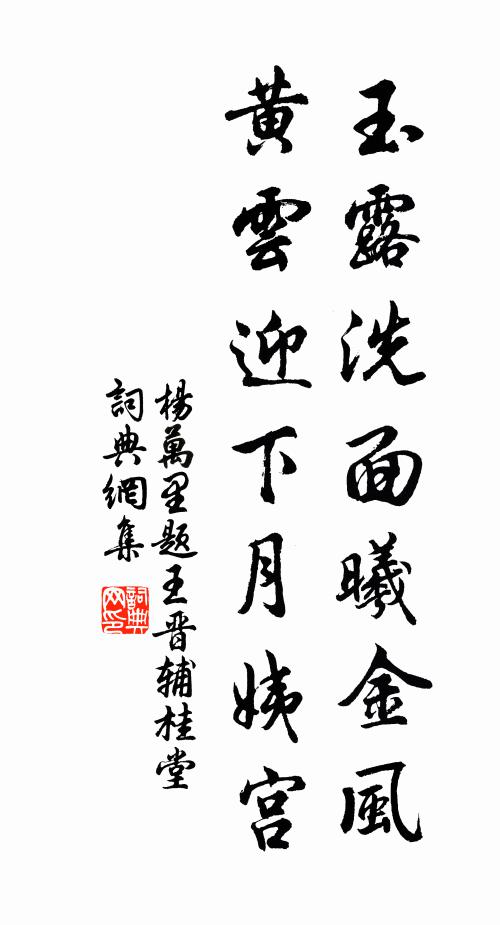 玉露洗面曦金風
黃雲迎下月姨宮
楊萬里题王晋辅桂堂
詞典網集
詞典网印